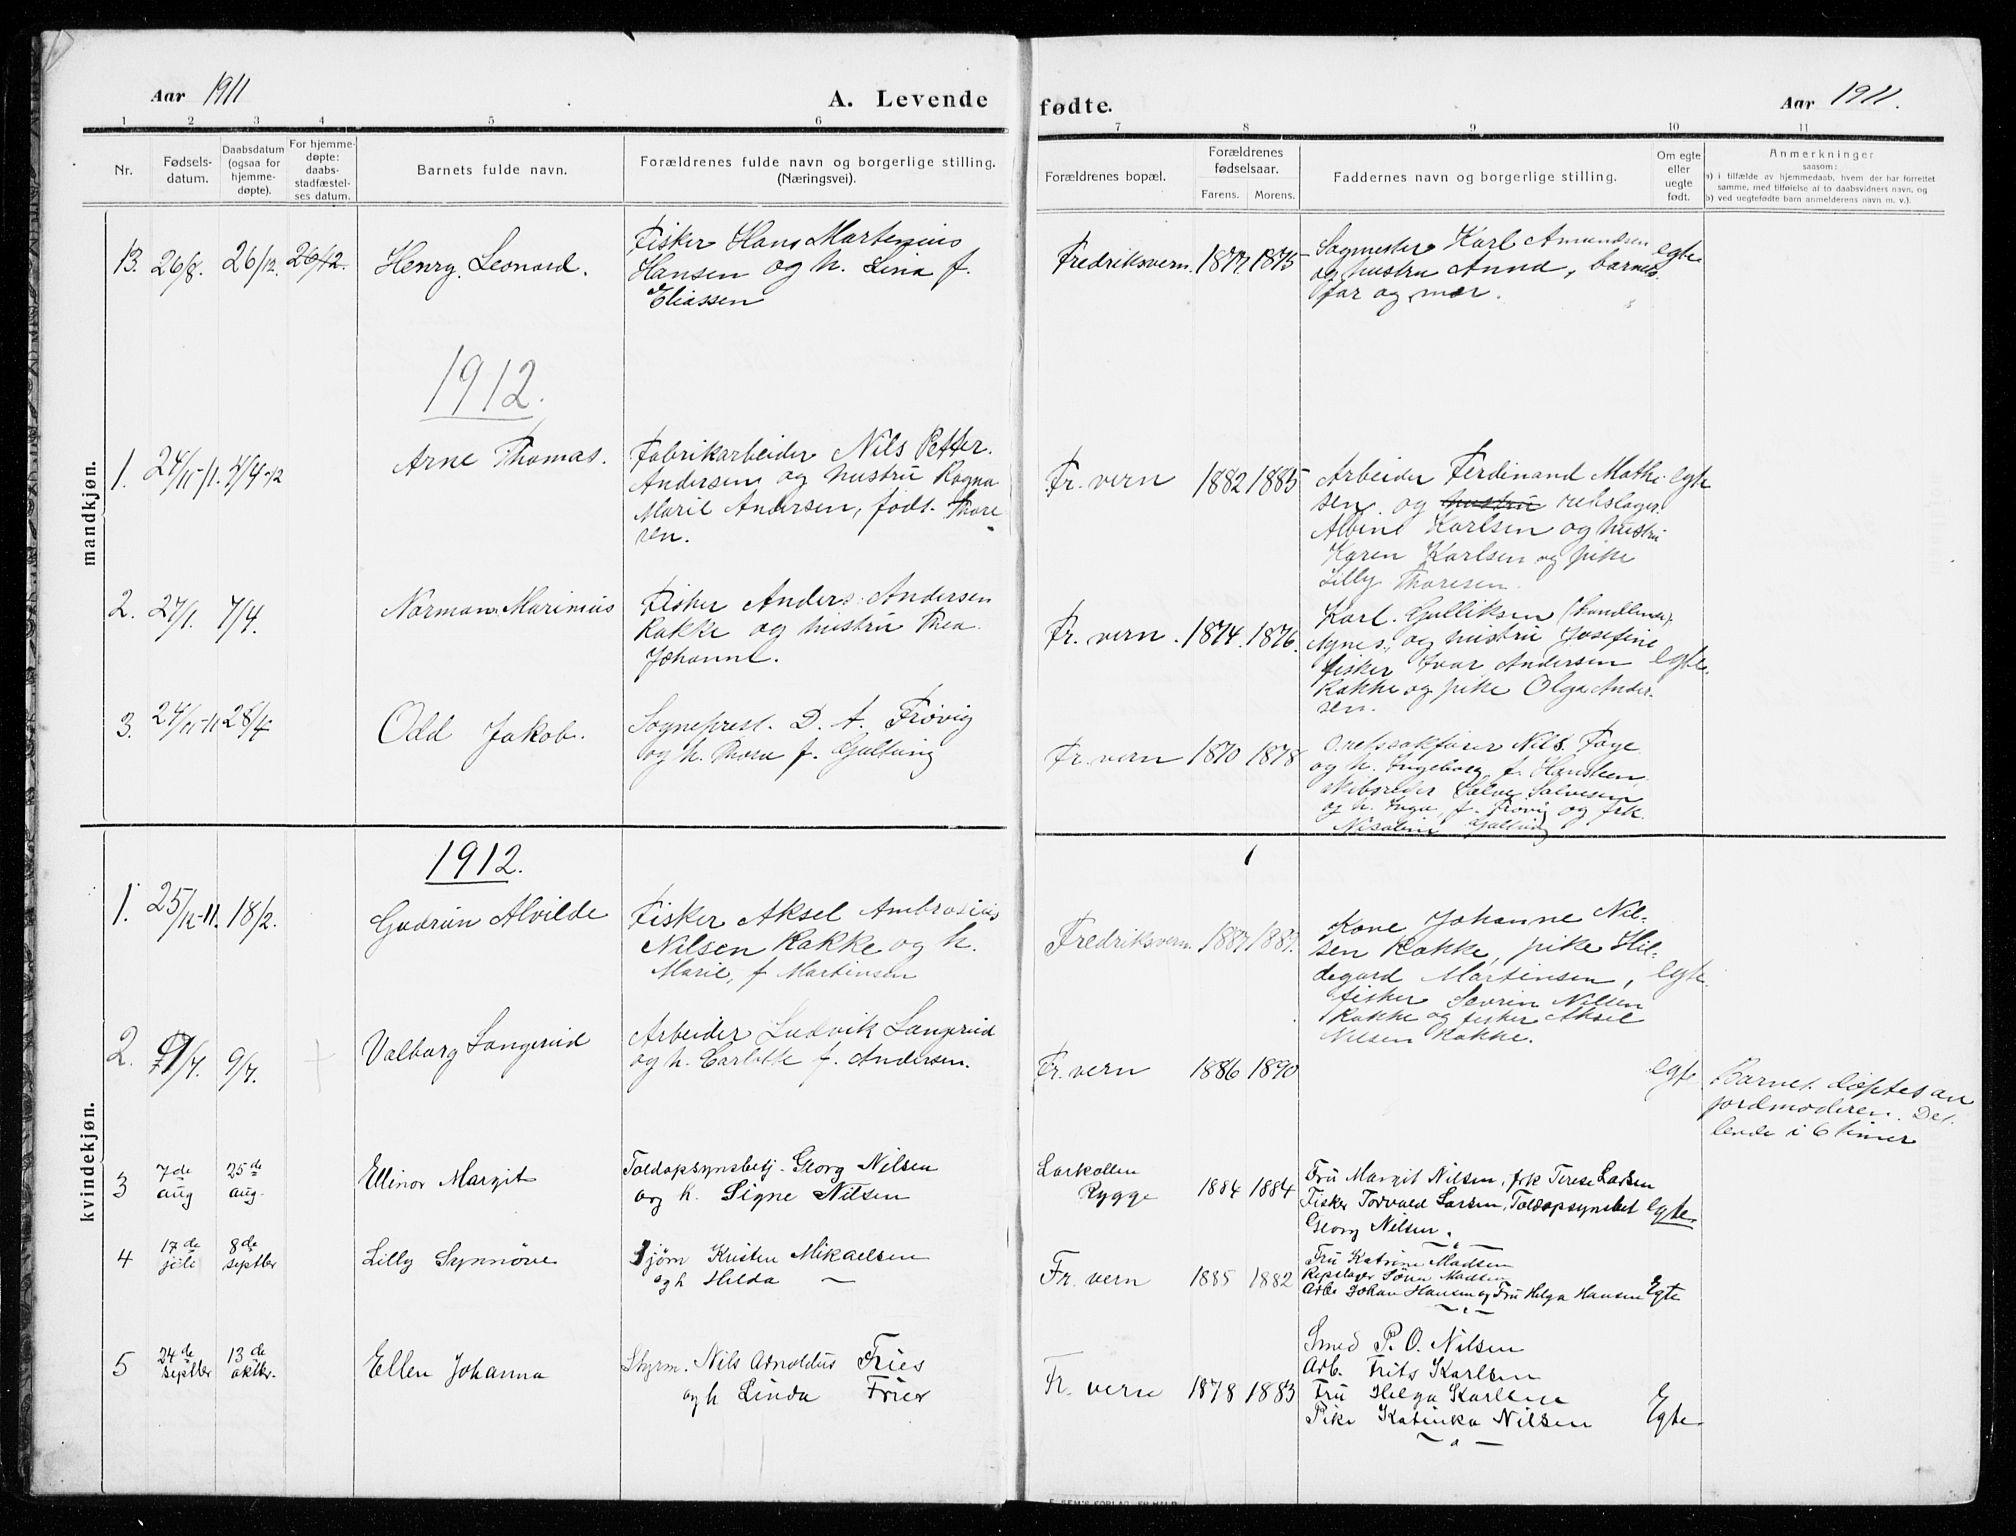 Aar 1911
A. Levende
fødte.
Aar 1911.
1 2 3 4 5 6
7 8 9 10 11
Nr.
Fødsels-
datum.
Daabsdatum
(ogsaa for
hjemme-
døpte).
For hjemme-
døpte:
daabs-
stadfæstel-
ses datum.
Barnets fulde navn.
Forældrenes fulde navn og borgerlige stilling.
(Næringsvei).
Forældrenes bopæl.
Forældrenes
fødselsaar.
Farens. Morens.
Faddernes navn og borgerlige stilling.
Om egte
eller
uegte
født.
Anmerkninger
saasom:
a) i tilfælde av hjemmedaab, hvem der har forrettet
samme, med tilføielse af to daabsvidners navn, og
b) ved uegtefødte barn anmelderens navn m. v.).
mandkjøn.
13. 26/8. 26/12. 26/12.
Henry. Leonard.
Fisker Hans Martinius
Hansen og h. Lina f.
Eliassen
Fredriksvern. 1877 1875
Sagmester Karl Amundsen
og hustru Anna, barnets
far og mor.
egte
1912.
1. 24/11-11. 4/4-12
Arne Thomas.
Fabrikarbeider Nils Petter.
Andersen og hustru Ragna
Marie Andersen, føds. Thore-
sen.
Fr. vern 1882 1885
Arbeider Ferdinand Mathi-
sen. og hustru repslager
Albine Karlsen og hustru
Karen Karlsen og pike
Lilly Thoresen.
egte
2. 27/1. 7/4.
Norman Marinius
Fisker Anders Andersen
Rakke og hustru Thea
Johanne.
Fr. vern. 1874. 1876.
Karl. Gulliksen
Agnes, og hustru Josefine
fisker Ivar Andersen
Rakke og pike Olga Ander-
sen.
egte.
3. 24/11-11 28/4
Odd Jakob.
Sogneprest. D. A. Frøvig
og h. Thora f. Galtung
Fr. vern 1870 1878
Nils Faye
og h. Ingeborg f. Hanssen,
skibsreder Salve Salvesen
og h. Inga, f. Frøvig og frk.
Galtung
kvindekjøn.
1912.
1. 25/12-11. 18/2.
Gudrun Alvilde
Fisker Aksel Ambrosius
Nilsen Rakke og h.
Marie, f Martinsen
Fredriksvern 1887 1887.
Kone Johanne Nil-
sen Rakke, pike Hil-
degard Martinsen,
fisker Sevrin Nilsen
Rakke og fisker Aksel
Nilsen Rakke.
egte.
2. 9/7. 9/7.
Valborg Langerud
Arbeider Ludvik Langerud
og h. Carlotte f. Andersen.
Fr. vern 1886 1890
egte
Barnet døptes av
jordmoderen. Det
levde i 6 timer
3 7de
aug
25de
aug.
Ellinor Margit
Toldopsynsbetj. Georg Nilsen
og h. Signe Nilsen
Larkollen
Rygge
1884 1884
Fru Margit Nilsen, frk Terese Larsen
Fisker Torvald Larsen, Toldopsynsbet
Georg Nilsen.
egte
4 17de
juli
8de
septbr
Lilly Synnöve
Sjøm Kristen Mikaelsen
og h Hilda —
Fr. vern 1885 1882
Fru Katrine Madsen
Repslager Sörn Madsen
Arb. Johan Hansen og Fru Helga Hansen
Egte
5 24de
septbr
13de
oktbr.
Ellen Johanna
Styrm. Nils Arnoldus Fries
og h Linda Fries
Fr. vern 1878 1883
Smed P. O. Nilsen
Arb. Frits Karlsen
Fru Helga Karlsen
Pike Katinka Nilsen
Egte